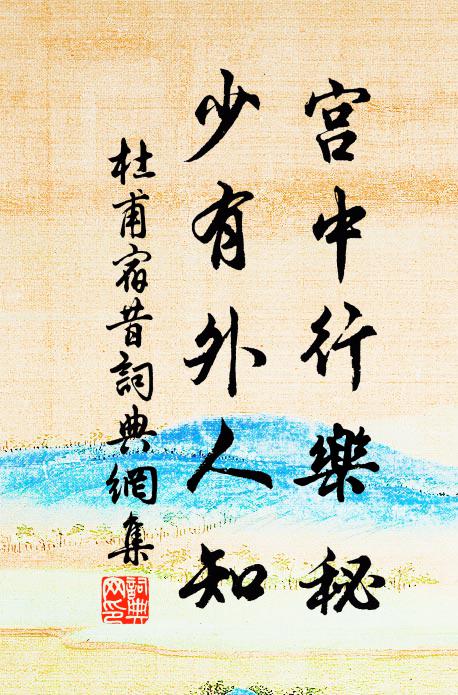 宮中行樂秘
少有外人知
杜甫宿昔詞典網集
詞典